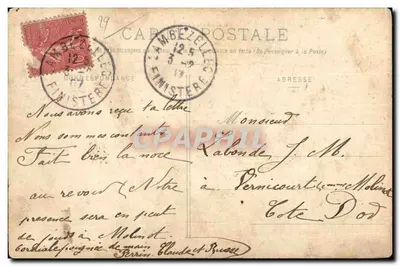 29
CARTE POSTALE
(Se renseigner à la Poste)
CORRESPONDANCE
ADRESSE
LAMBEZELLEC
12
FINISTERE
LAMBEZELLEC
12-5
FINISTERE
CPARAMA
Nous avons reçu ta lettre
Nous sommes contents
Fait bien la noce
au revoir (Notre
presence sera en peut
de jours à Molinot.
Cordiale poignée de main
Perrin Claude et
Monsieur
Labonde J. M.
à Vernicourt Molinot
Cote Dod